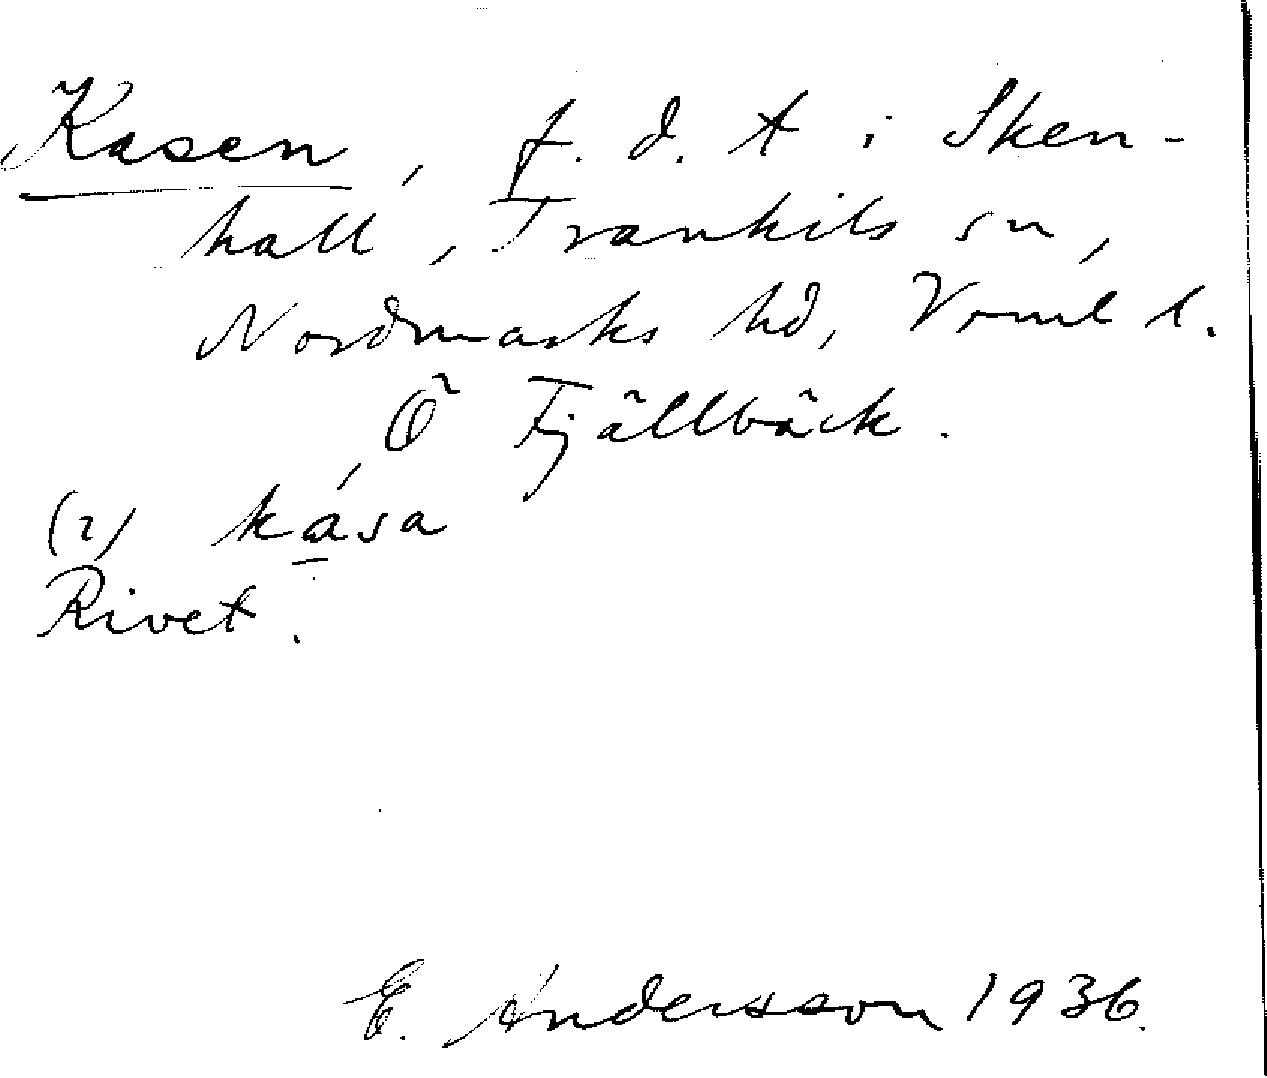 Kasen, f. d. t i Sken-
hall, Trankils sn,
Nordmarks hd, Vrml l.
Ö Fjällbäck.
(2) kása
Rivet.
E. Andersson 1936.